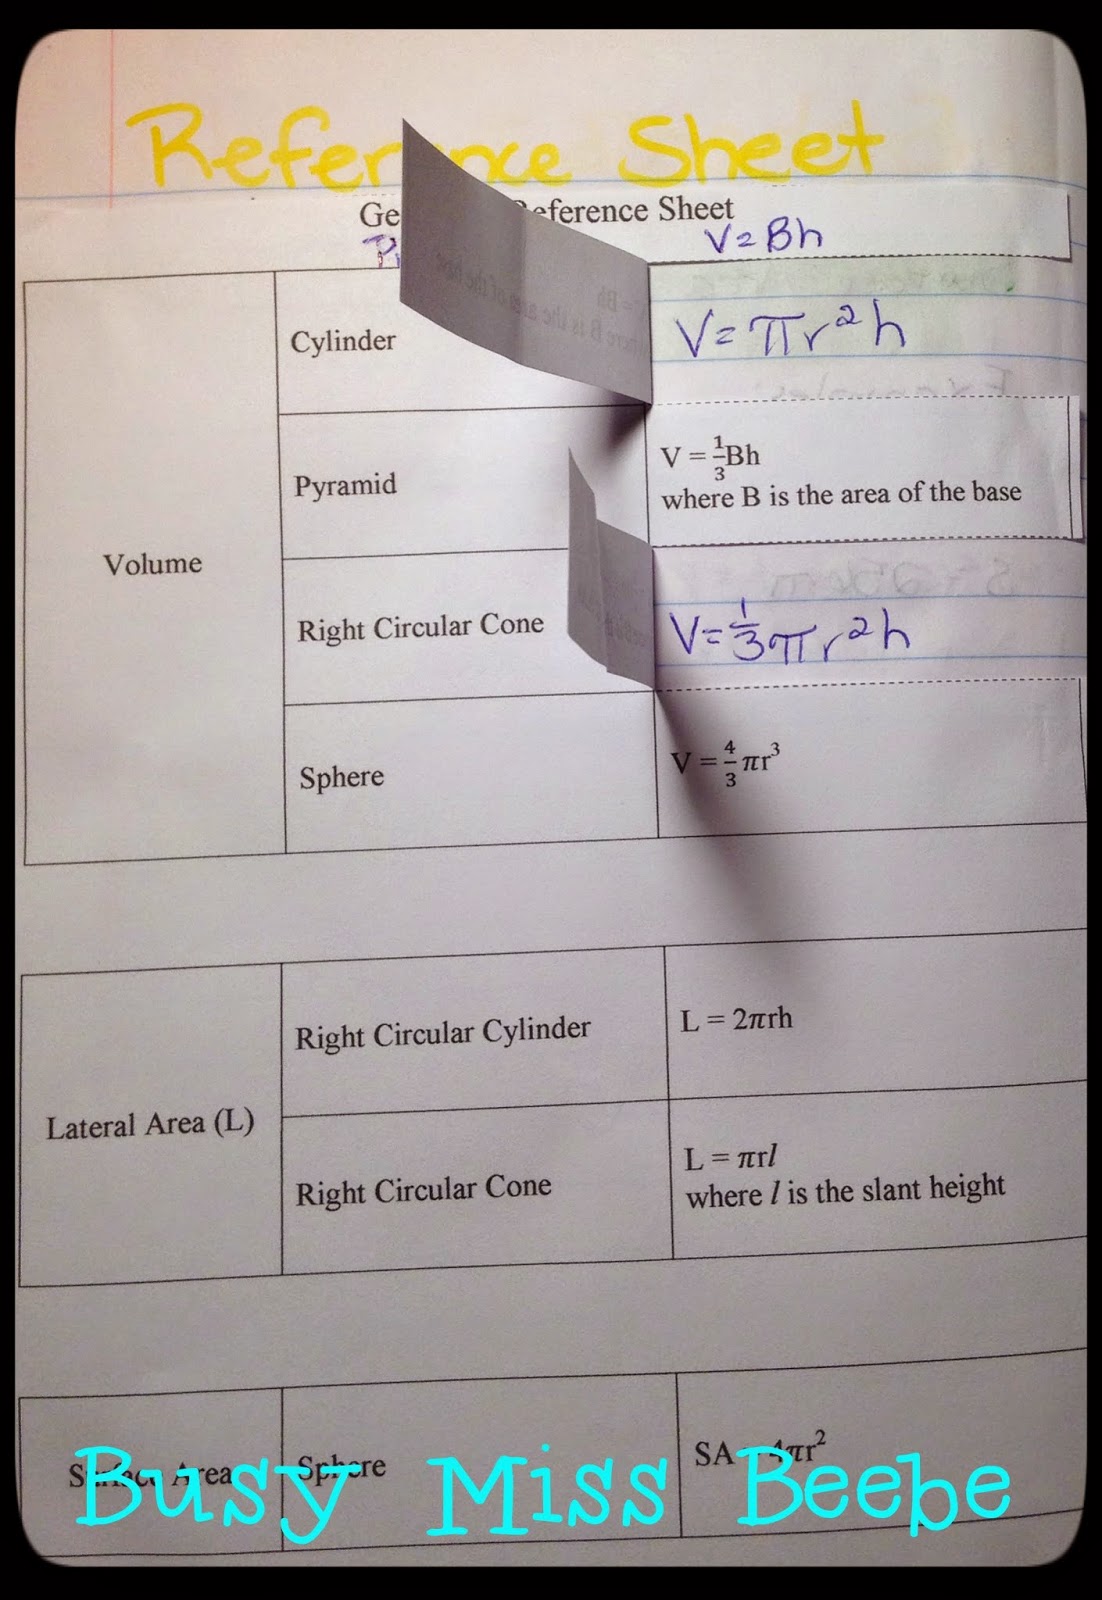 Reference Sheet
Reference Sheet
V=Bh
Volume
Cylinder
V=πr²h
Pyramid
V = 1/3 Bh
where B is the area of the base
Right Circular Cone
V=1/3πr²h
Sphere
V = 4/3 πr³
Lateral Area (L)
Right Circular Cylinder
L = 2πrh
Right Circular Cone
L = πrl
where l is the slant height
Surface Area
Sphere
SA = 4πr²
Busy Miss Beebe